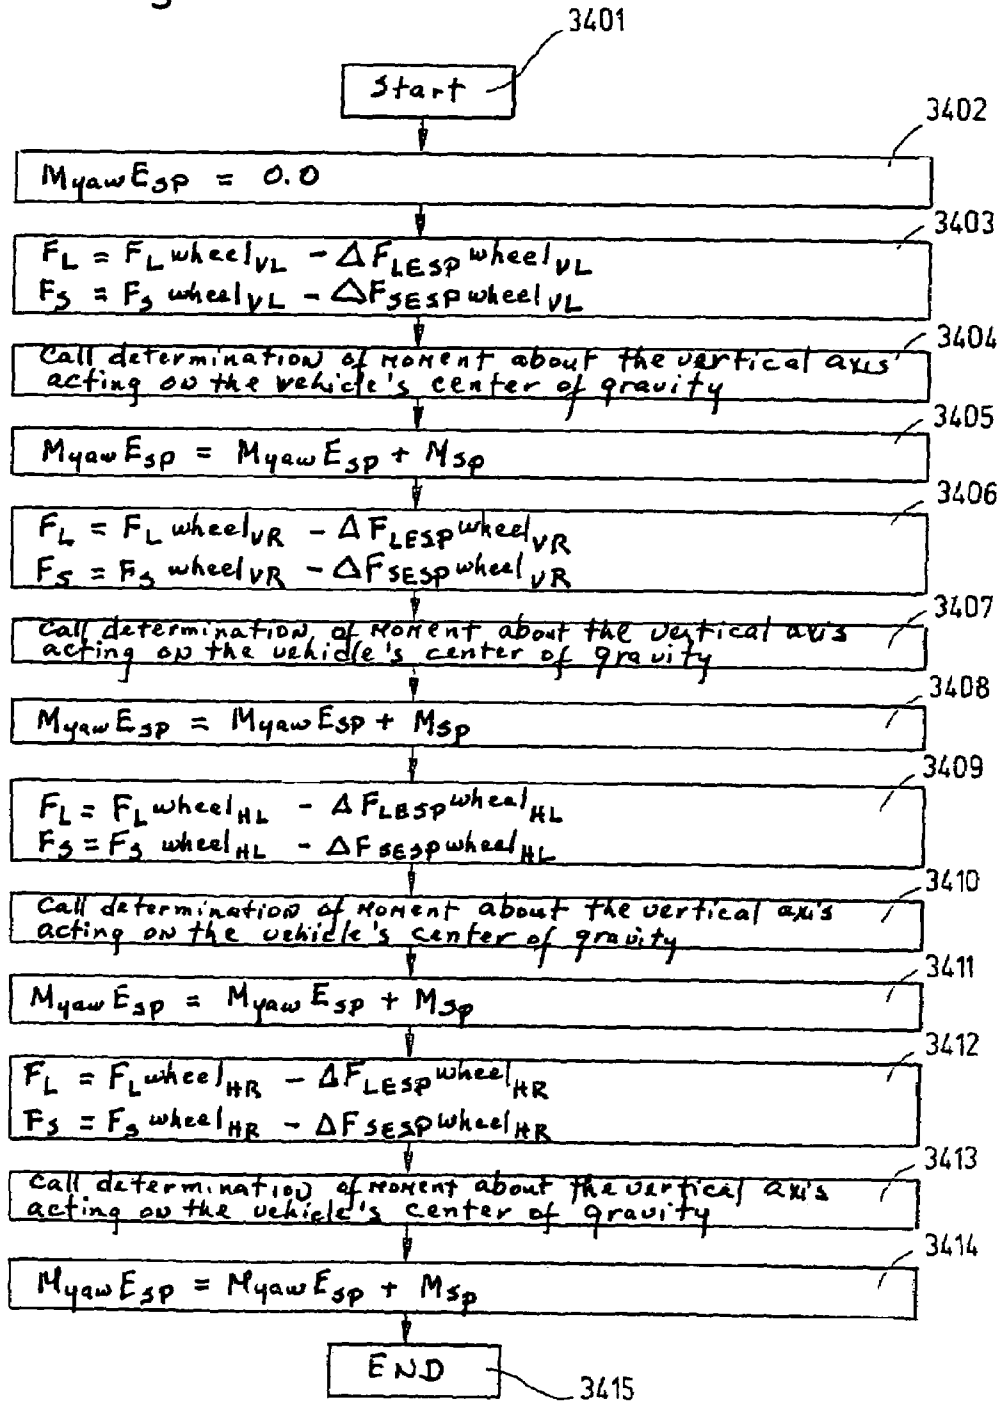 3401
Start
3402
MyawESP = 0.0
3403
FL = FL wheelVL - ΔFLESP wheelVL
FS = FS wheelVL - ΔFSESP wheelVL
3404
Call determination of moment about the vertical axis
acting on the vehicle's center of gravity
3405
MyawESP = MyawESP + MSp
3406
FL = FL wheelVR - ΔFLESP wheelVR
FS = FS wheelVR - ΔFSESP wheelVR
3407
Call determination of moment about the vertical axis
acting on the vehicle's center of gravity
3408
MyawESP = MyawESP + MSp
3409
FL = FL wheelHL - ΔFLESP wheelHL
FS = FS wheelHL - ΔFSESP wheelHL
3410
Call determination of moment about the vertical axis
acting on the vehicle's center of gravity
3411
MyawESP = MyawESP + MSp
3412
FL = FL wheelHR - ΔFLESP wheelHR
FS = FS wheelHR - ΔFSESP wheelHR
3413
Call determination of moment about the vertical axis
acting on the vehicle's center of gravity
3414
MyawESP = MyawESP + MSp
END
3415